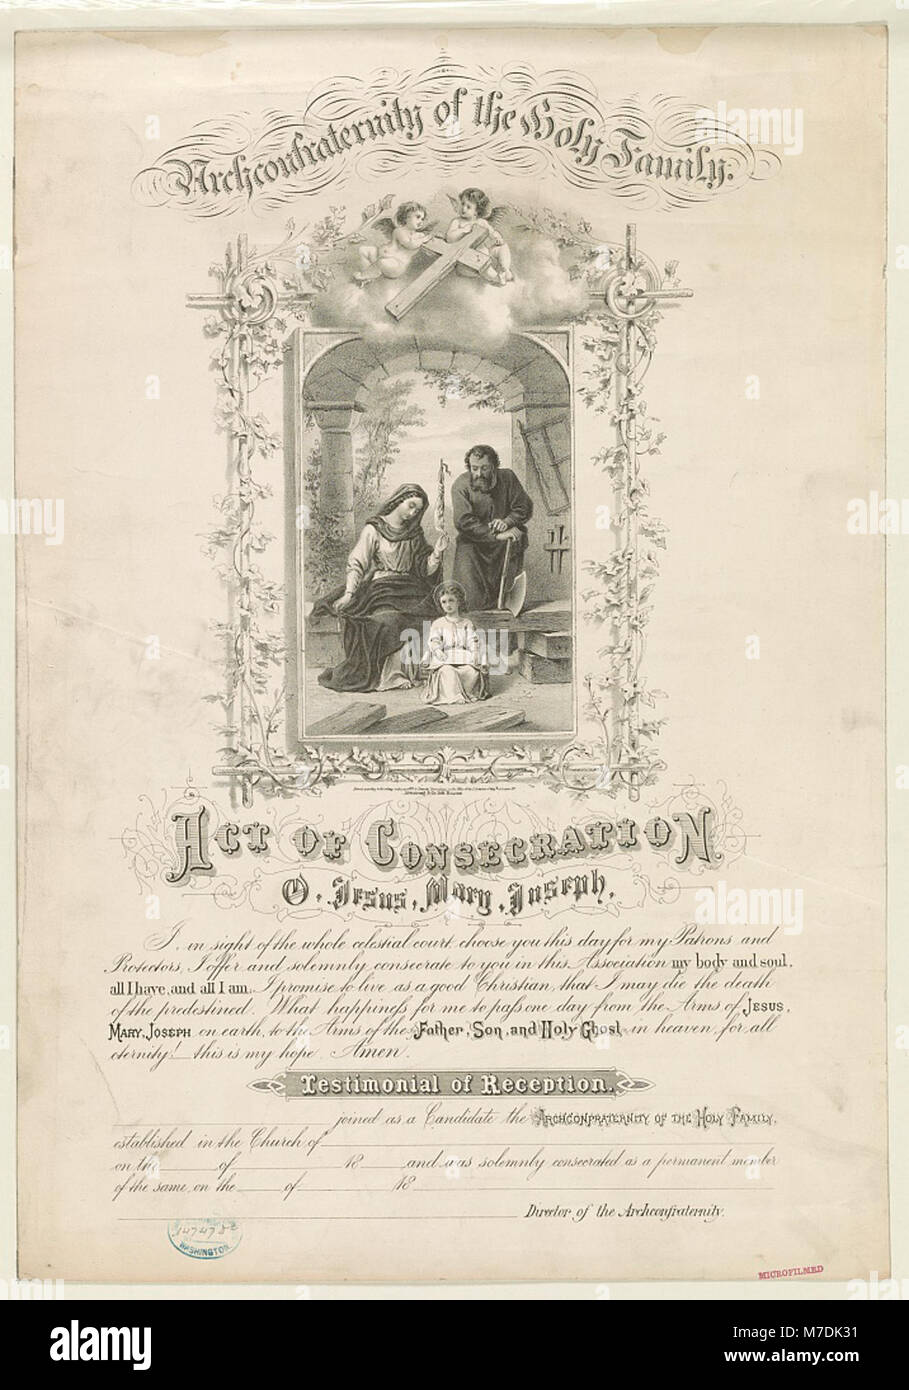 Archconfraternity of the Holy Family.
ACT OF CONSECRATION.
O. Jesus, Mary, Joseph,
I, in sight of the whole celestial court, choose you this day for my Patrons and
Protectors, I offer and solemnly consecrate to you in this Association my body and soul,
all I have, and all I am. I promise to live as a good Christian, that I may die the death
of the predestined. What happiness for me to pass one day from the Arms of JESUS,
MARY, JOSEPH on earth, to the Arms of the Father, Son, and Holy Ghost in heaven, for all
eternity! this is my hope. Amen.
Testimonial of Reception.
joined as a Candidate the ARCHCONFRATERNITY OF THE HOLY FAMILY,
established in the Church of
on the of 18 and was solemnly consecrated as a permanent member
of the same, on the of 18
Director of the Archconfraternity.
WASHINGTON
MICROFILMED
a
alamy
alamy
alamy stock photo
M7DK31
www.alamy.com